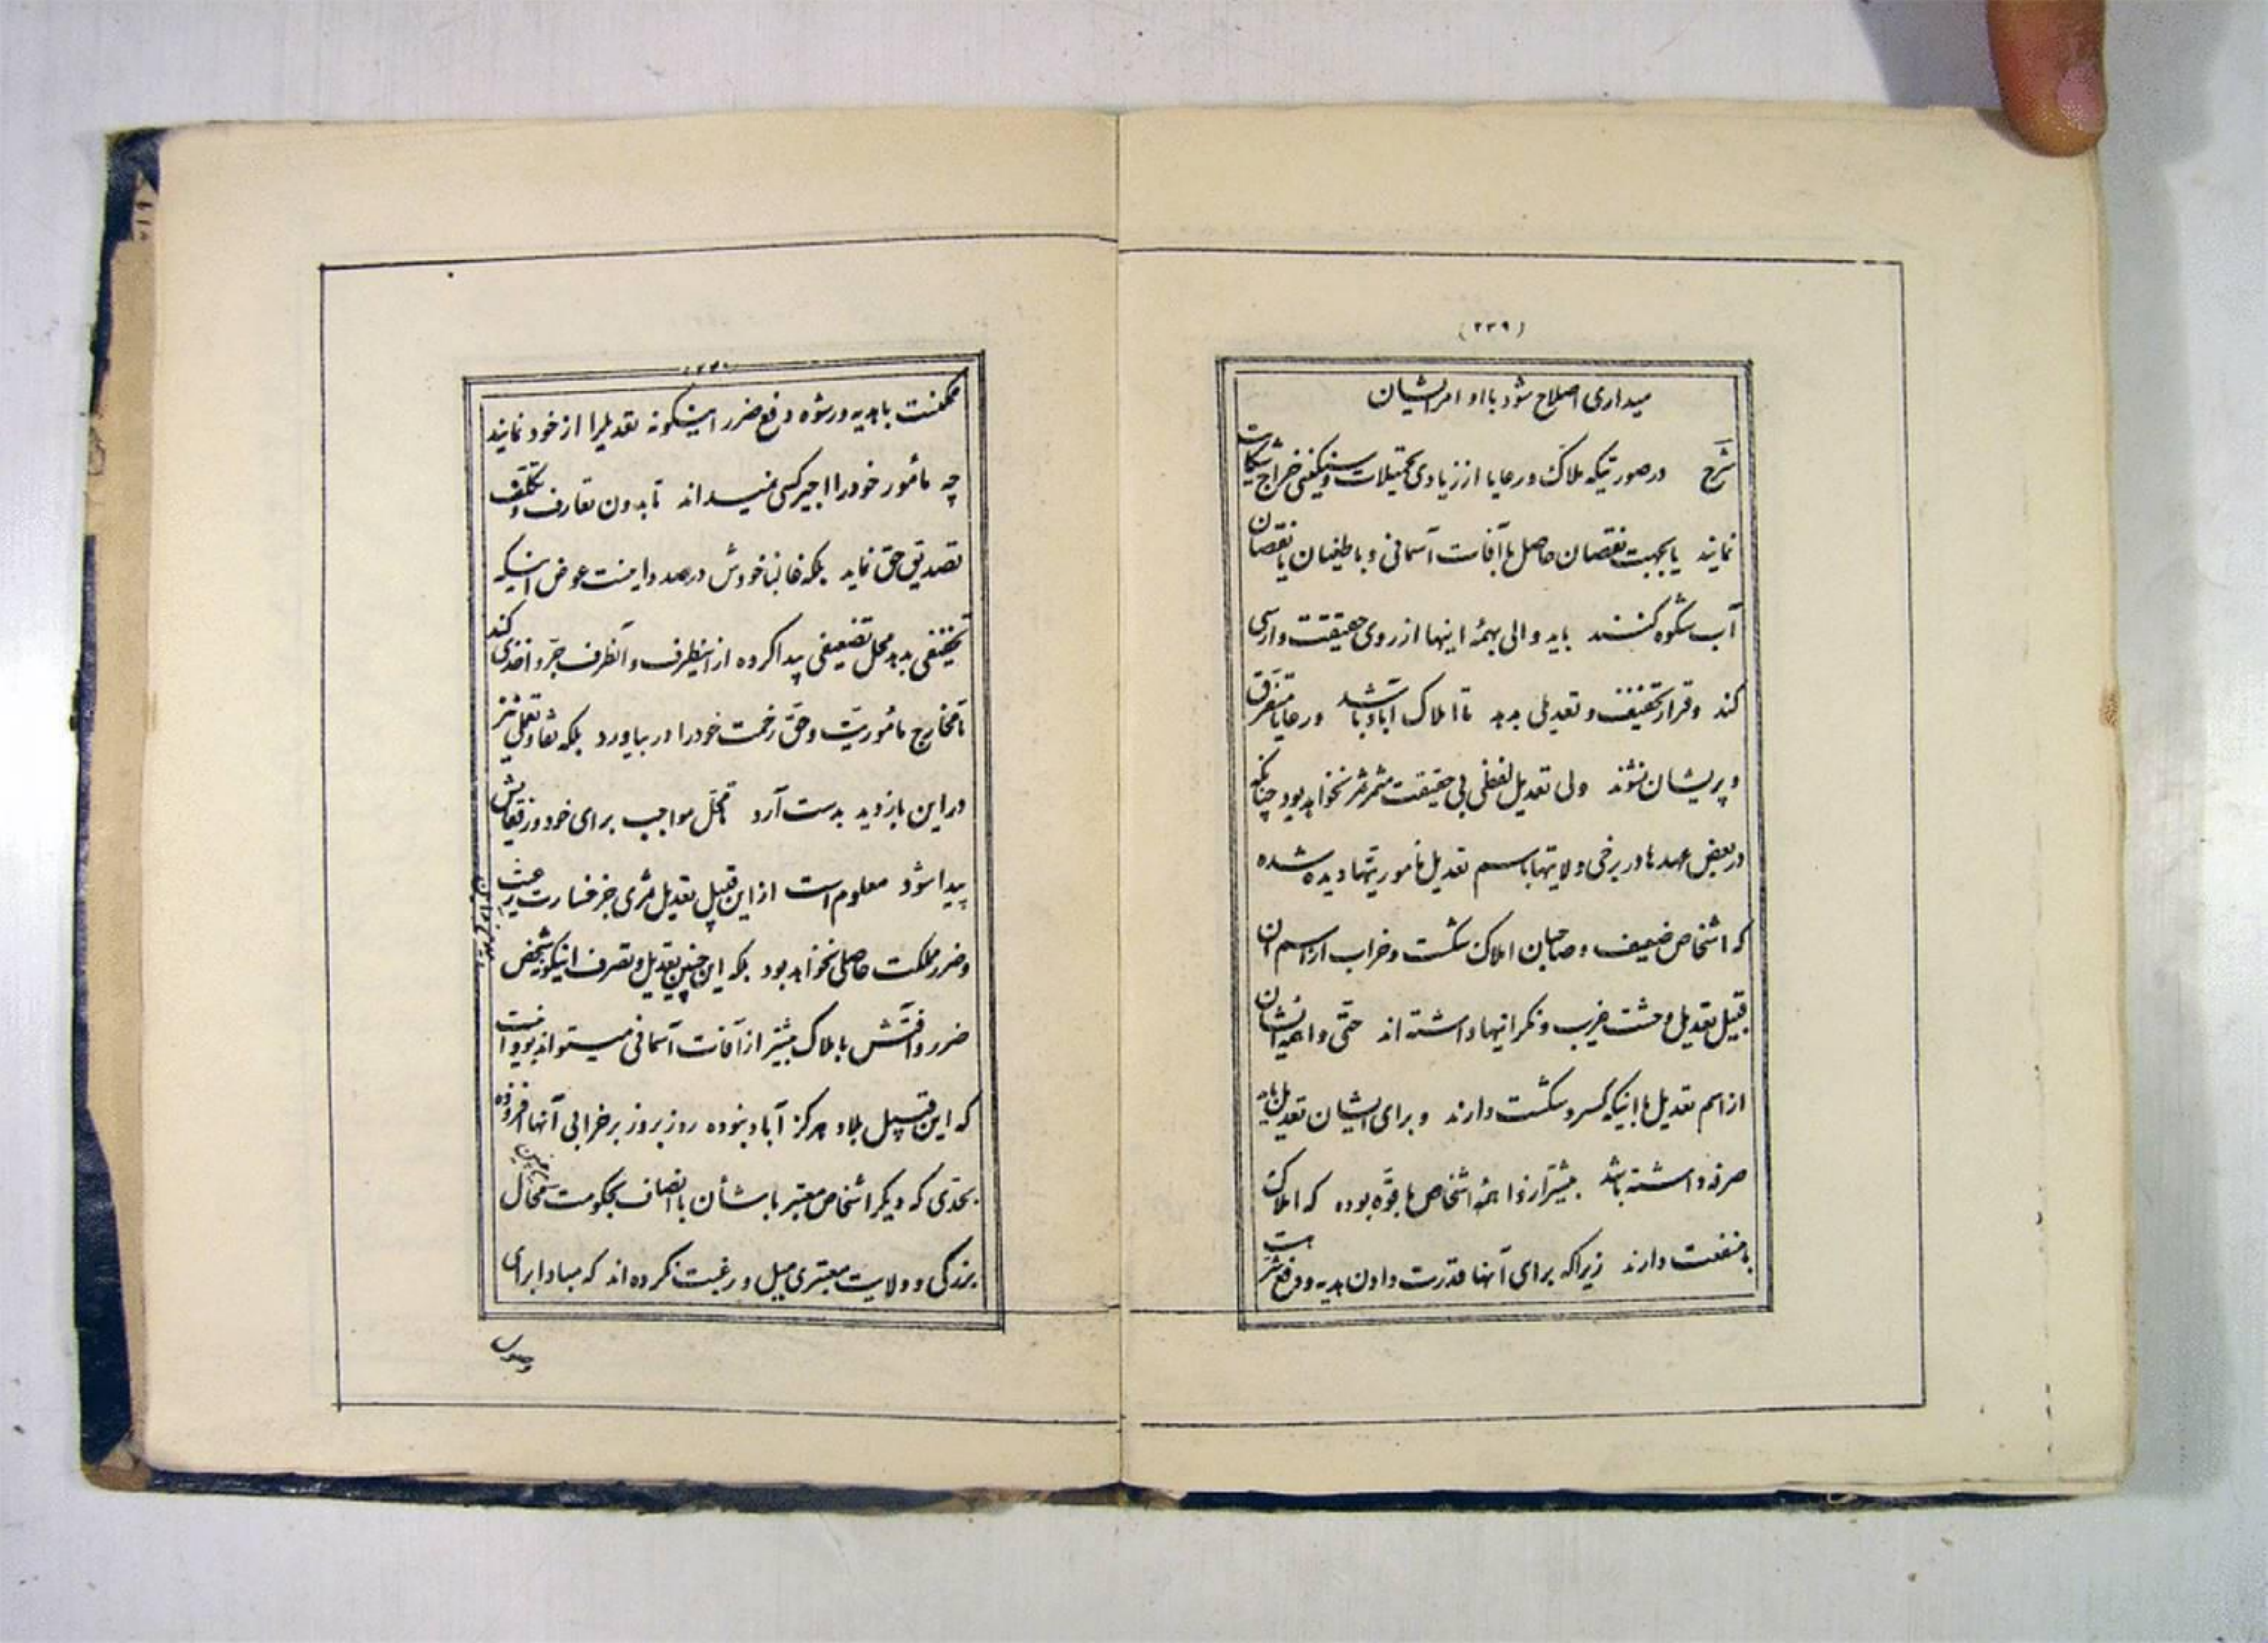 (۲۳۹)
میداری اصلاح شود با او امر ایشان
شرح در صورتیکه ملاک و رعایا از زیادی تحمیلات و سنگینی خراج شکایت
نمایند یا بجهت نقصان حاصل یا آفات آسمانی و یا طغیان یا نقصان
آب شکوه کنند باید والی بهمهٔ اینها از روی حقیقت وارسی
کند و قرار تخفیف و تعدیلی بدهد تا املاک آباد باشد و رعایا متفرق
و پریشان نشوند ولی تعدیل لفظی بی حقیقت مثمر ثمر نخواهد بود چنانکه
در بعض عهدها در برخی ولایتها باسم تعدیل مأموریتها دیده شده
که اشخاص ضعیف و صاحبان املاک شکست و خراب از اسم آن
قبیل تعدیل وحشت غریب و نکرانیها داشته اند حتی واهمه ایشان
از اسم تعدیل با اینکه کسر و شکست دارند و برای ایشان تعدیل باید
صرفه داشته باشد بیشتر از واهمهٔ اشخاص با قوّه بوده که املاک
با منفعت دارند زیرا که برای آنها قدرت دادن هدیه و دفع شر هست
ممکنست با هدیه و رشوه دفع ضرر اینکونه تعدیلرا از خود نمایند
چه مأمور خود را اجیر کسی نمیداند تا بدون تعارف و تکلف
تصدیق حق نماید بلکه غالبا خودش درصدد است عوض اینکه
تخفیفی بدهد محل تضعیفی پیدا کرده از اینطرف و آنطرف جرّ و اخذی کند
تا مخارج مأموریت و حق زحمت خود را در بیاورد بلکه تفاوت عملی نیز
در این بازدید بدست آرد تا محل مواجب برای خود و رفقایش
پیدا شود معلوم است از این قبیل تعدیل ثمری جز خسارت رعیت
و ضرر مملکت حاصلی نخواهد بود بلکه این چنین تعدیل و تصرف اینکونه شخص
ضرر و آفتش باملاک بیشتر از آفات آسمانی میتواند بود و آنست
که این قبیل بلاد هرکز آباد نبوده روز بروز بر خرابی آنها افزوده
بحدّی که دیکر اشخاص معتبر با شأن با انصاف بحکومت چنین محال
بزرکی و ولایت معتبری میل و رغبت نکرده اند که مبادا برای
وصول